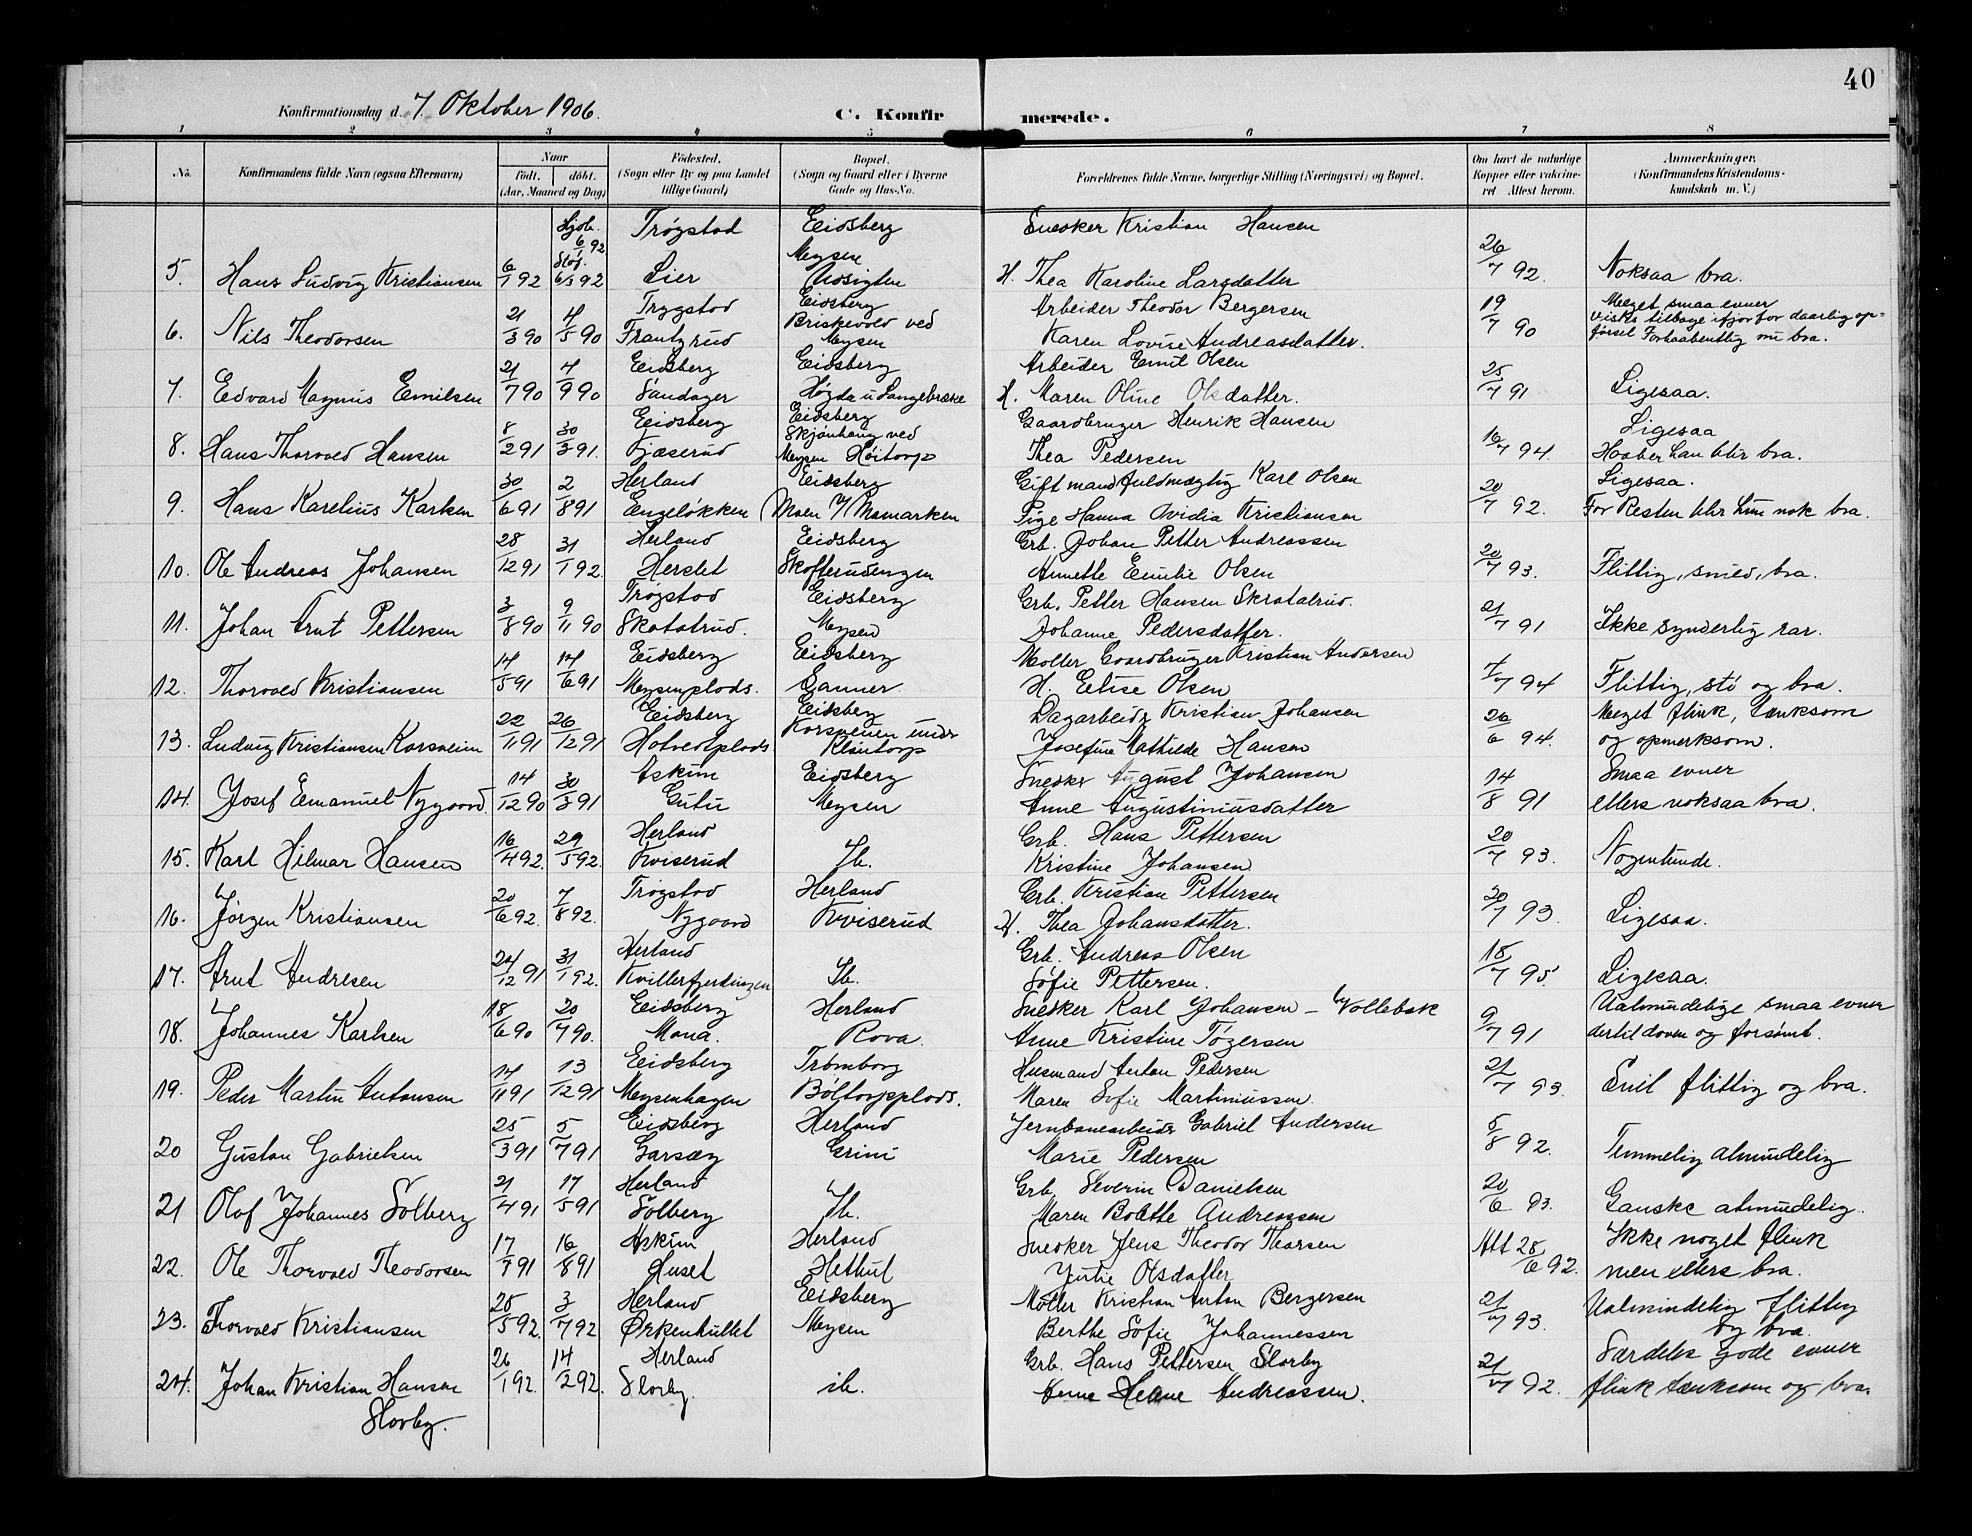 40
Konfirmationsdag d. 7. Oktober 1906.
C. Konfirmerede.
1 2 3 4 5 6 7 8
No.
Konfirmandens fulde Navn (ogsaa Efternavn)
Naar
født. døbt.
(Aar, Maaned og Dag)
Fødested.
(Sogn eller By og paa Landet tillige Gaard)
Bopæl.
(Sogn og Gaard eller i Byerne Gade og Hus-No.
Forældrenes fulde Navne, borgerlige Stilling (Næringsvei) og Bopæl.
Om havt de naturlige Kopper eller vaccineret Attest herom.
Anmærkninger,
(Konfirmandens Kristendomskundskab m. V.)
Hjdb. 6/1 92 Trøgstad Eidsberg Snedker Kristian Hansen
5. Hans Ludvig Kristiansen 6/1 92 Stad. 6/3 92 Lier Mysen Udsigten H. Thea Karoline Larsdatter 26/7 92. Noksaa bra.
6. Nils Theodorsen 21/3 90 4/5 90 Trygstad Frantzrud Eidsberg Briskevold ved Mysen Arbeider Theodor Bergersen Karen Lovise Andreasdatter. 19/7 90 Meget smaa evner vistes tilbage ifjor for daarlig opførsel Forhaabentlig nu bra.
7. Edvard Magnus Emilsen 21/7 90 4/9 90 Eidsberg Sandager Eidsberg Høgda u Langebrække Arbeider Emil Olsen H. Maren Oline Olsdatter. 25/7 91 Ligesaa.
8. Hans Thorvald Hansen 8/2 91 30/3 91. Eidsberg Kjæserud Eidsberg Skjønhaug ved Mysen Høitorp Gaardbruger Henrik Hansen Thea Pedersen 16/7 94. Ligesaa Haaber han blir bra.
9. Hans Karelius Karlsen 30/6 91 2/8 91 Herland Engeløkken Eidsberg Moen i/ Momarken Gift mand fuldmægtig Karl Olsen Pige Hanna Ovidia Kristiansen 20/7 92. Ligesaa. For Resten blir han nok bra.
10. Ole Andreas Johansen 28/12 91 31/1 92. Herland Herslet Eidsberg Skofterudengen Grb. Johan Petter Andreassen Annette Emilie Olsen 20/7 93. Flittig, snild, bra.
11. Johan Arnt Pettersen 3/8 90 9/11 90 Trøgstad Skatatrud. Eidsberg Mysen Grb. Petter Hansen Skratatrud. Johanne Pedersdatter. 21/7 91 Ikke synderlig rar.
12. Thorvald Kristiansen 14/5 91 14/6 91 Eidsberg Mysenplads. Eidsberg Sanner Møller Gaardbruger Kristian Andersen H. Elise Olsen 1/7 94 Flittig, stø og bra.
13. Ludvig Kristiansen Korsveien 22/11 91 26/12 91 Eidsberg Hotvedtplads Eidsberg Korsveien under Kløitorp Dagarbeider Kristian Johansen Josefine Mathilde Hansen 26/6 94. Meget flink, tænksom og opmerksom.
14. Josef Emanuel Nygaard 14/12 90 30/3 91 Askim Gutu Eidsberg Mysen Snedker August Johansen Anne Augustiniusdatter 14/8 91 Smaa evner ellers noksaa bra.
15. Karl Hilmar Hansen 16/4 92. 29/5 92. Herland Kviserud Ib. Grb. Hans Pettersen Kristine Johansen 20/7 93. Nogenlunde.
16. Jørgen Kristiansen 20/6 92. 7/8 92. Trøgstad Nygaard Herland Kviserud Grb. Kristian Pettersen H. Thea Johansdatter. 30/7 93. Ligesaa.
17. Arnt Andresen 24/12 91 31/1 92. Herland Kvillerfjerdingen Ib. Grb. Andreas Olsen Sofie Pettersen. 18/7 95 Ligesaa.
18. Johannes Karlsen 18/6 90 20/7 90. Eidsberg Mona. Herland Rova. Snedker Karl Johansen - Vollebæk Anne Kristine Tøgersen 9/7 91 Ualmindelige smaa evner dertil doven og forsømt.
19. Peder Martin Antonsen 14/11 91 13/12 91 Eidsberg Mysenhagen Trømborg Bøltorpplads. Husmand Anton Pedersen Maren Sofie Martinussen. 21/7 93. Snil flittig og bra.
20 Gustav Gabrielsen 25/3 91 5/7 91 Eidsberg Garsæg Herland Grini Jernbanearbeider Gabriel Andersen Marie Pedersen 5/8 92. Temmelig almindelig
21 Olof Johannes Solberg 21/4 91 17/5 91 Herland Solberg Ib. Grb. Severin Danielsen Maren Bolethe Andreassen 20/6 93. Ganske almindelig.
22. Ole Thorvald Theodorsen 17/7 91 16/8 91 Askim Huset Herland Hethul Snedker Jens Theodor Thorsen Julie Olsdatter Att 28/6 92. Ikke noget flink men ellers bra.
23. Thorvald Kristiansen 28/5 92. 3/7 92 Herland Ørkenhullet Eidsberg Mysen Møller Kristian Anton Bergersen Berthe Sofie Johannessen 21/7 93. Ualmindelig flittig og bra.
24. Johan Kristian Hansen Slorby. 26/1 92. 14/2 92. Herland Slorby. ib. Grb. Hans Pettersen Slorby Anne Helene Andreassen. 21/7 92. Særdeles gode evner flink tænksom og bra.